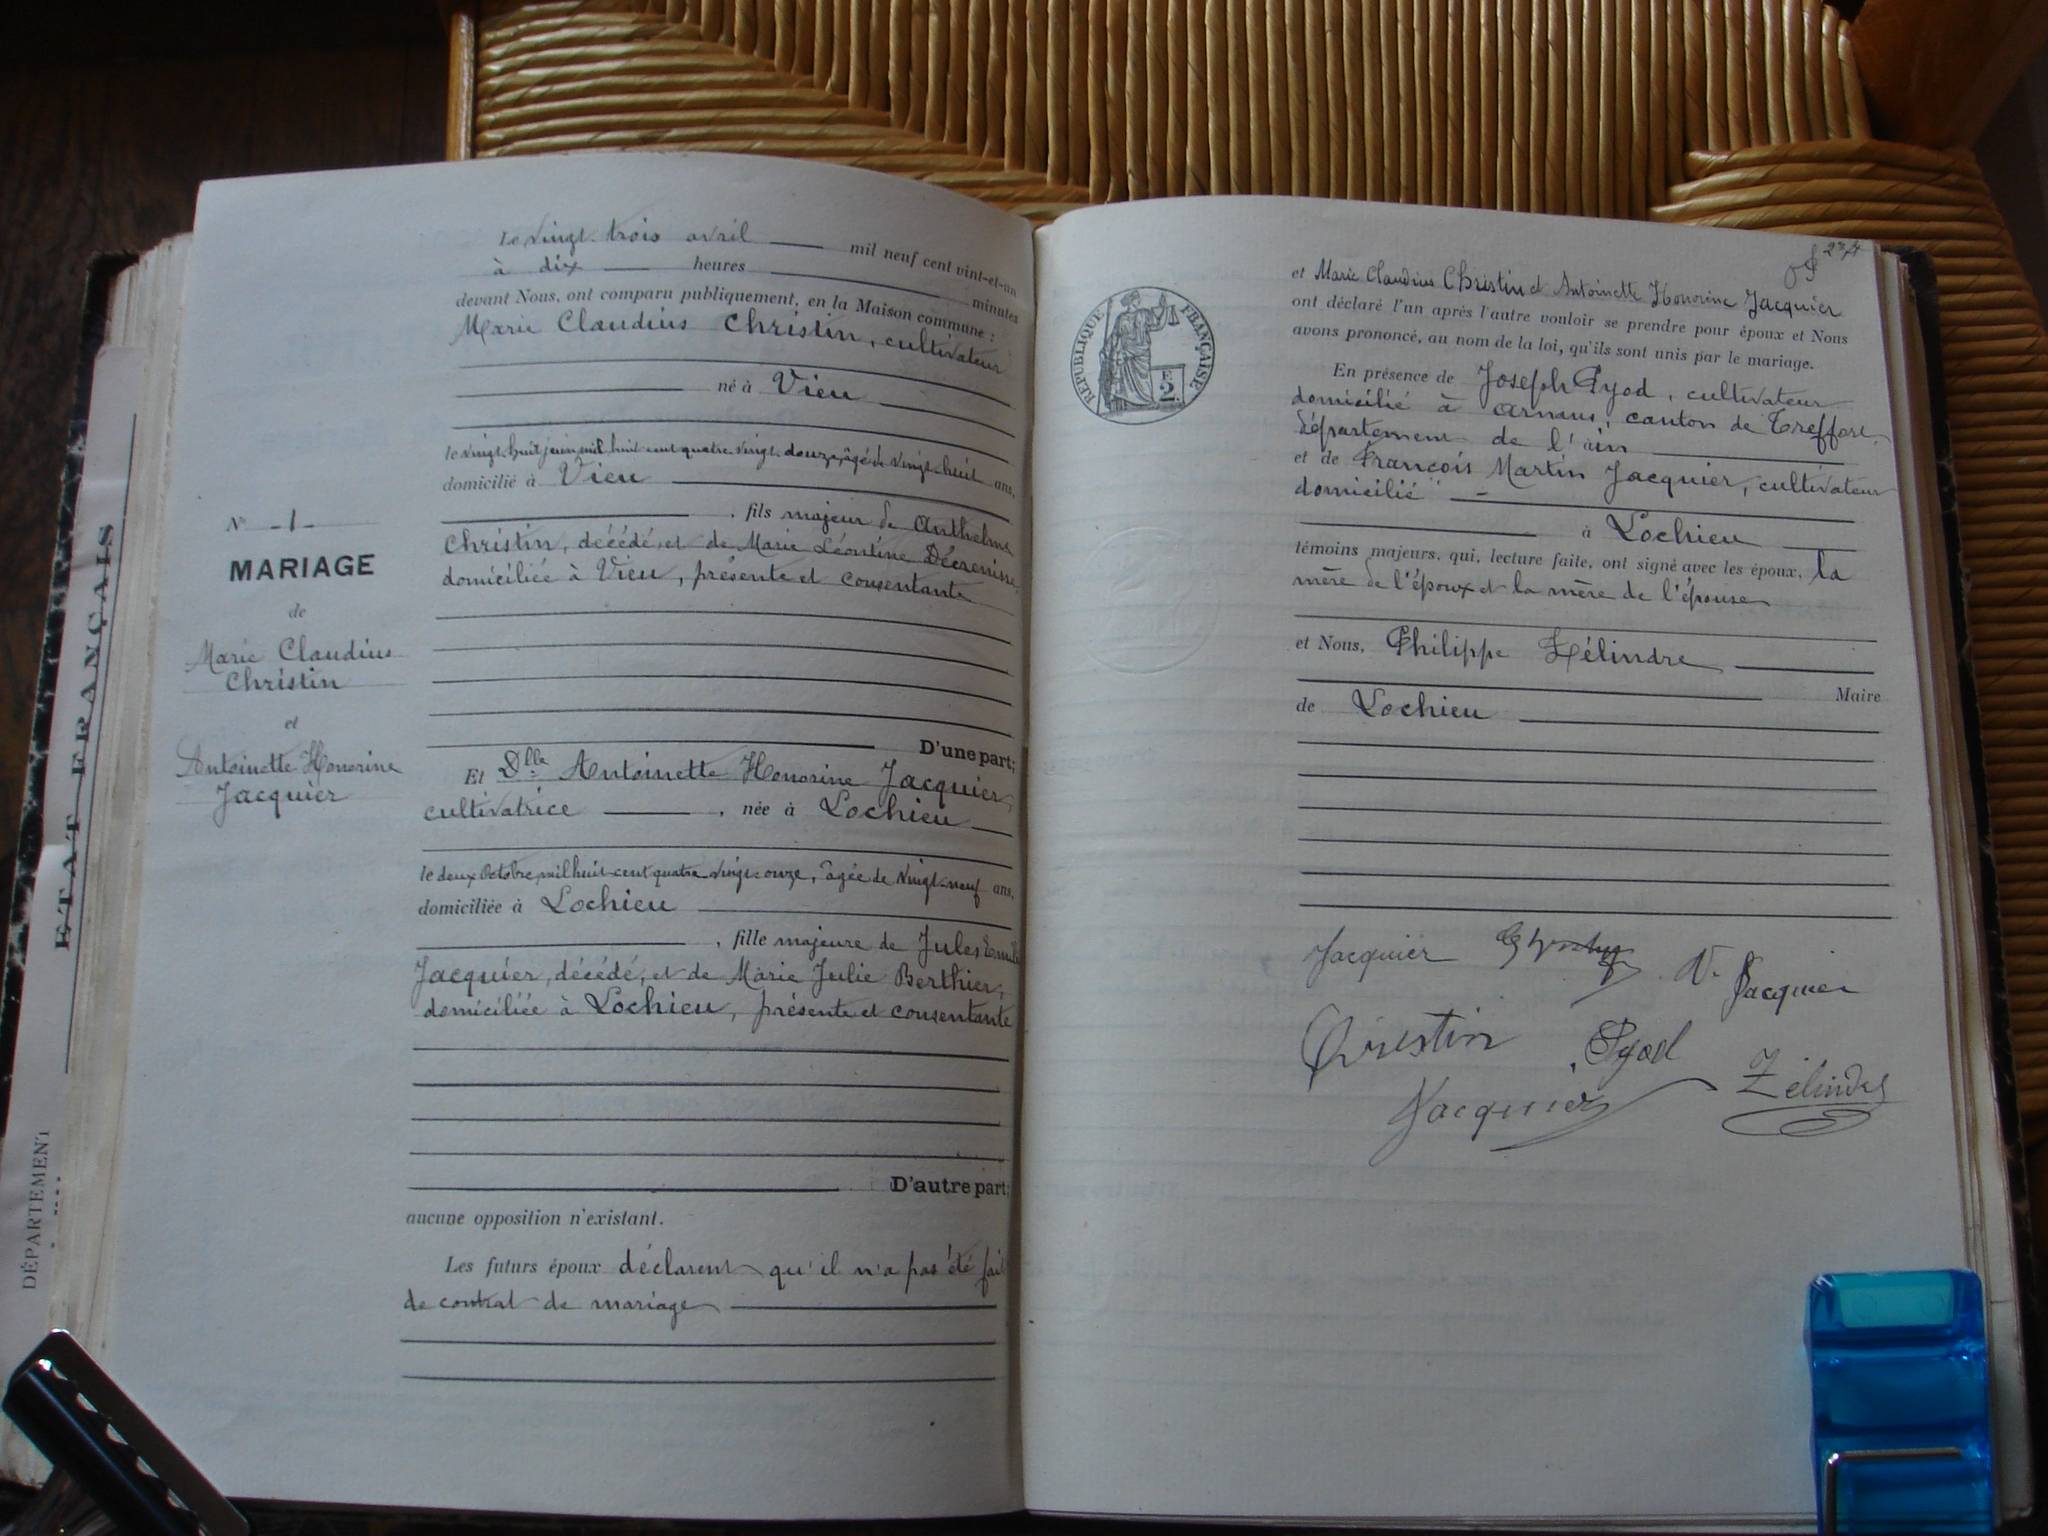 Le vingt-trois avril mil neuf cent vint-et-un
à dix heures minutes
devant Nous, ont comparu publiquement, en la Maison commune :
Marie Claudius Christin, cultivateur
né à Vieu
le vingt-huit juin mil huit cent quatre-vingt-douze, âgé de vingt-huit ans,
domicilié à Vieu
, fils majeur de Anthelme
Christin, décédé, et de Marie Léontine Décrenisse,
domiciliée à Vieu, présente et consentante
D'une part;
Et Dlle Antoinette Honorine Jacquier,
cultivatrice , née à Lochieu
le deux Octobre mil huit-cent quatre-vingt-onze, agée de vingt-neuf ans,
domiciliée à Lochieu
, fille majeure de Jules Emile
Jacquier, décédé, et de Marie Julie Berthier,
domiciliée à Lochieu, présente et consentante
D'autre part;
aucune opposition n'existant.
Les futurs époux déclarent qu'il n'a pas été fait
de contrat de mariage
N° -1-
MARIAGE
de
Marie Claudius
Christin
et
Antoinette Honorine
Jacquier
ETAT FRANÇAIS
DÉPARTEMENT
274
RÉPUBLIQUE FRANÇAISE
E
2
et Marie Claudius Christin et Antoinette Honorine Jacquier
ont déclaré l'un après l'autre vouloir se prendre pour époux et Nous
avons prononcé, au nom de la loi, qu'ils sont unis par le mariage.
En présence de Joseph Pyod, cultivateur
domicilié à Arnans, canton de Treffort,
département de l'ain
et de François Martin Jacquier, cultivateur
domicilié
à Lochieu
témoins majeurs, qui, lecture faite, ont signé avec les époux, la
mère de l'époux et la mère de l'épouse
et Nous, Philippe Zélindre
Maire
de Lochieu
Jacquier
Vve Jacquier
Christin Pyod
Jacquier Zélindre